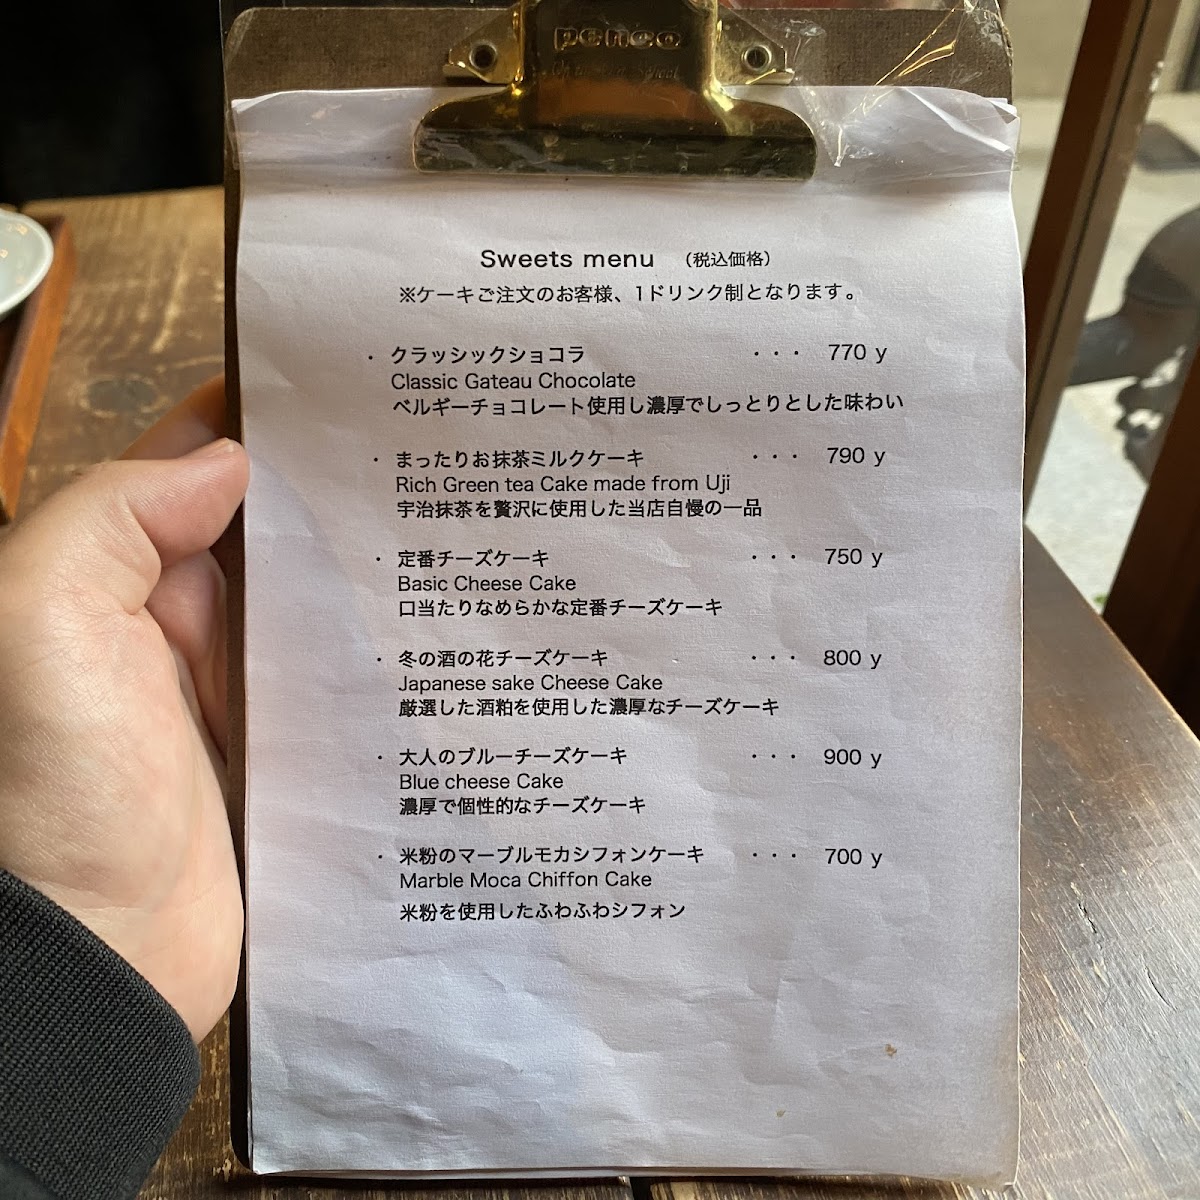 penco
Sweets menu （税込価格）
※ケーキご注文のお客様、1ドリンク制となります。
・ クラッシックショコラ ・・・ 770 y
Classic Gateau Chocolate
ベルギーチョコレート使用し濃厚でしっとりとした味わい
・ まったりお抹茶ミルクケーキ ・・・ 790 y
Rich Green tea Cake made from Uji
宇治抹茶を贅沢に使用した当店自慢の一品
・ 定番チーズケーキ ・・・ 750 y
Basic Cheese Cake
口当たりなめらかな定番チーズケーキ
・ 冬の酒の花チーズケーキ ・・・ 800 y
Japanese sake Cheese Cake
厳選した酒粕を使用した濃厚なチーズケーキ
・ 大人のブルーチーズケーキ ・・・ 900 y
Blue cheese Cake
濃厚で個性的なチーズケーキ
・ 米粉のマーブルモカシフォンケーキ ・・・ 700 y
Marble Moca Chiffon Cake
米粉を使用したふわふわシフォン